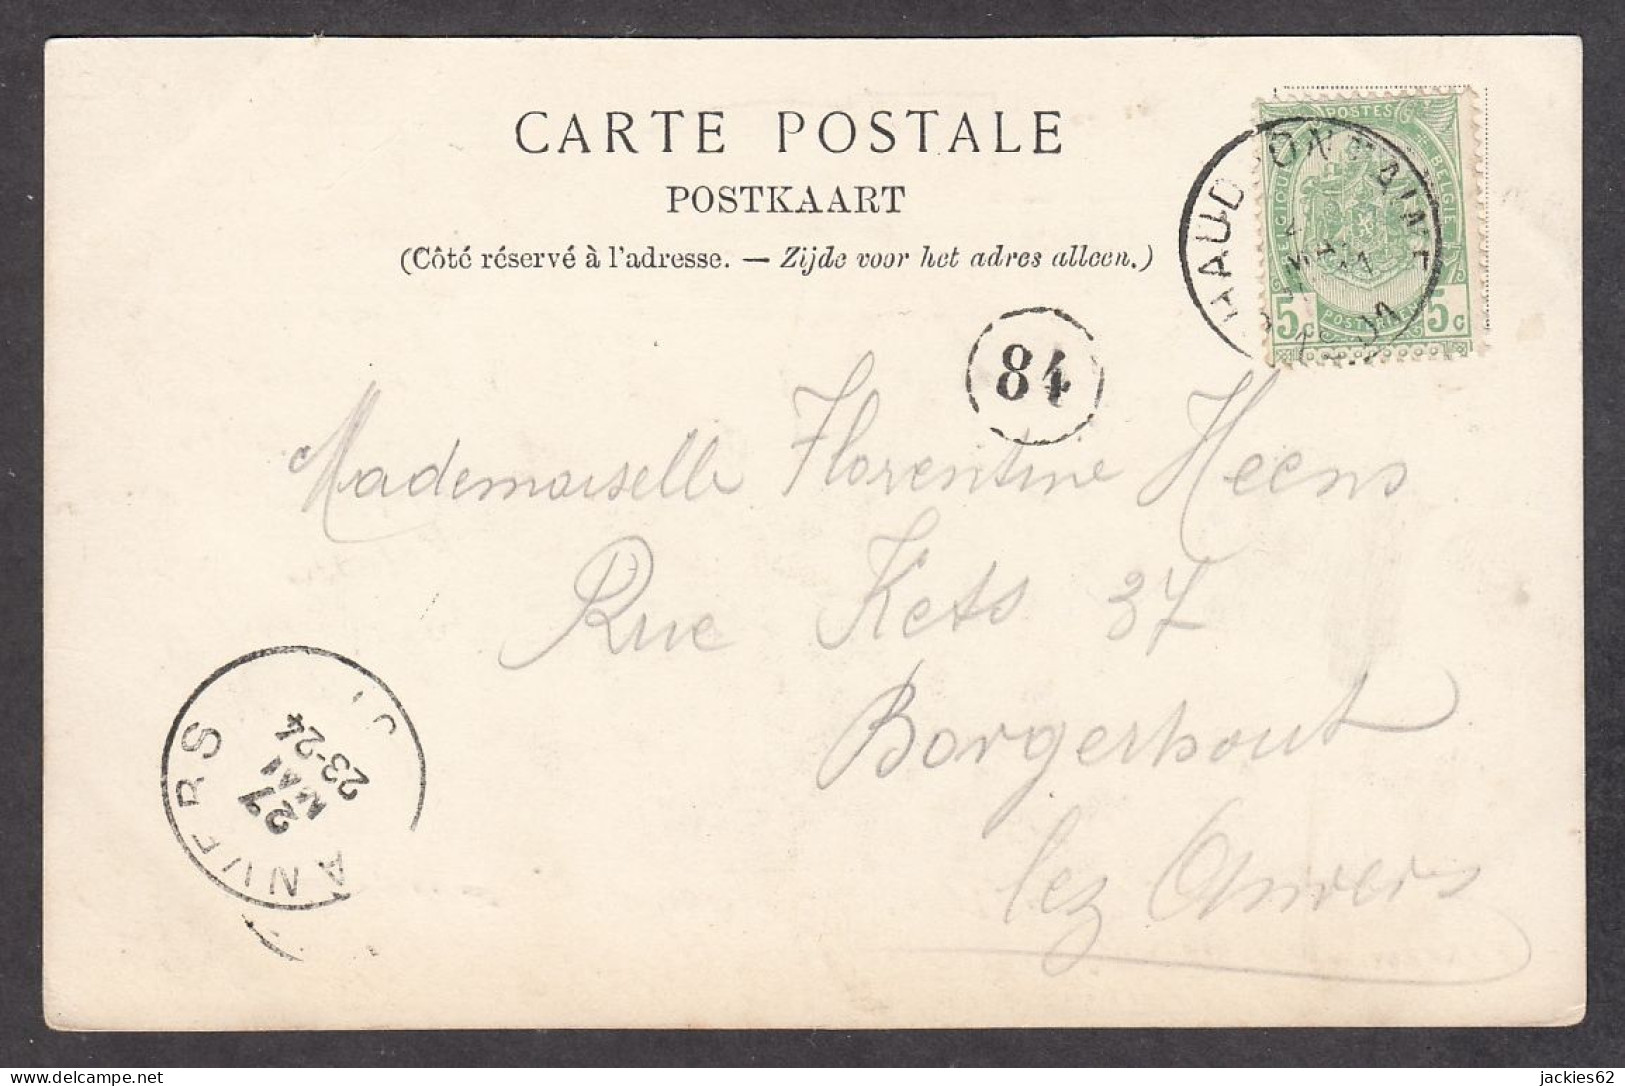 CARTE POSTALE
POSTKAART
(Côté réservé à l'adresse. — Zijde voor het adres alleen.)
POSTES
5c 5c
84
Mademoiselle Florentine Heens
Rue Kets 37
Borgerhout
lez Anvers
ANVERS
27
MAI
23-24
jackies62